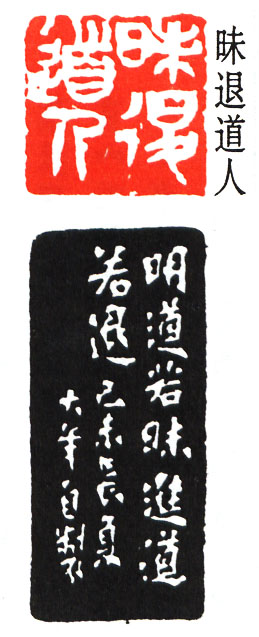 昧退道人
昧退
道人
明道若昧進道
若退己未長夏
大年自製